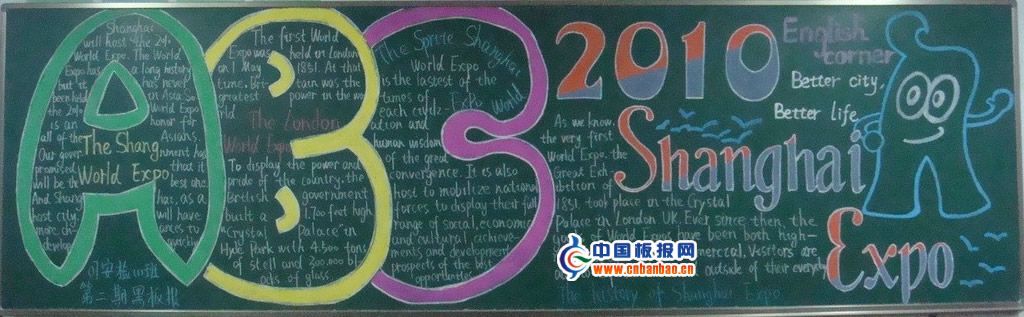 Shanghai
will host the 24th
World Expo. The World
Expo has a long history
but it has never
been held in Asia. So
the 24th World Expo
is an honor for
all of the Asians.
The Shang
World Expo
Our government has
promised that it
will be the best one.
And Shanghai, as a
host city, will have
more chances to
develop quickly
第二期黑板报
The first World
Expo was held in London
on 1 May 1851. At that
time, Britain was the
greatest power in the world
The London
World Expo
To display the power and
pride of the country, the
British government
built a 1,700 feet high
"Crystal Palace" in
Hyde Park with 4,500 tons
of steel and 300,000 blo
cks of glass.
The Spirite Shanghai
World Expo
World Expo
is the lastest of the
times of the
each civiliz-
ation and
human wisdom
of the great
convergence. It is also
host to mobilize national
forces to display their full
range of social, economic
and cultural achieve-
ments and development
prospects of the best
opportunities
2010
Shanghai
Expo
English
corner
Better city,
Better life
As we know,
the very first
World Expo, the
Great Exh
ibition of
1851, took place in the Crystal
Palace in London UK. Ever since then, the
of World Expos have been both high-
commercial. Visitors are
outside of their everyday
The history of Shanghai Expo
中国板报网
www.cnbanbao.cn